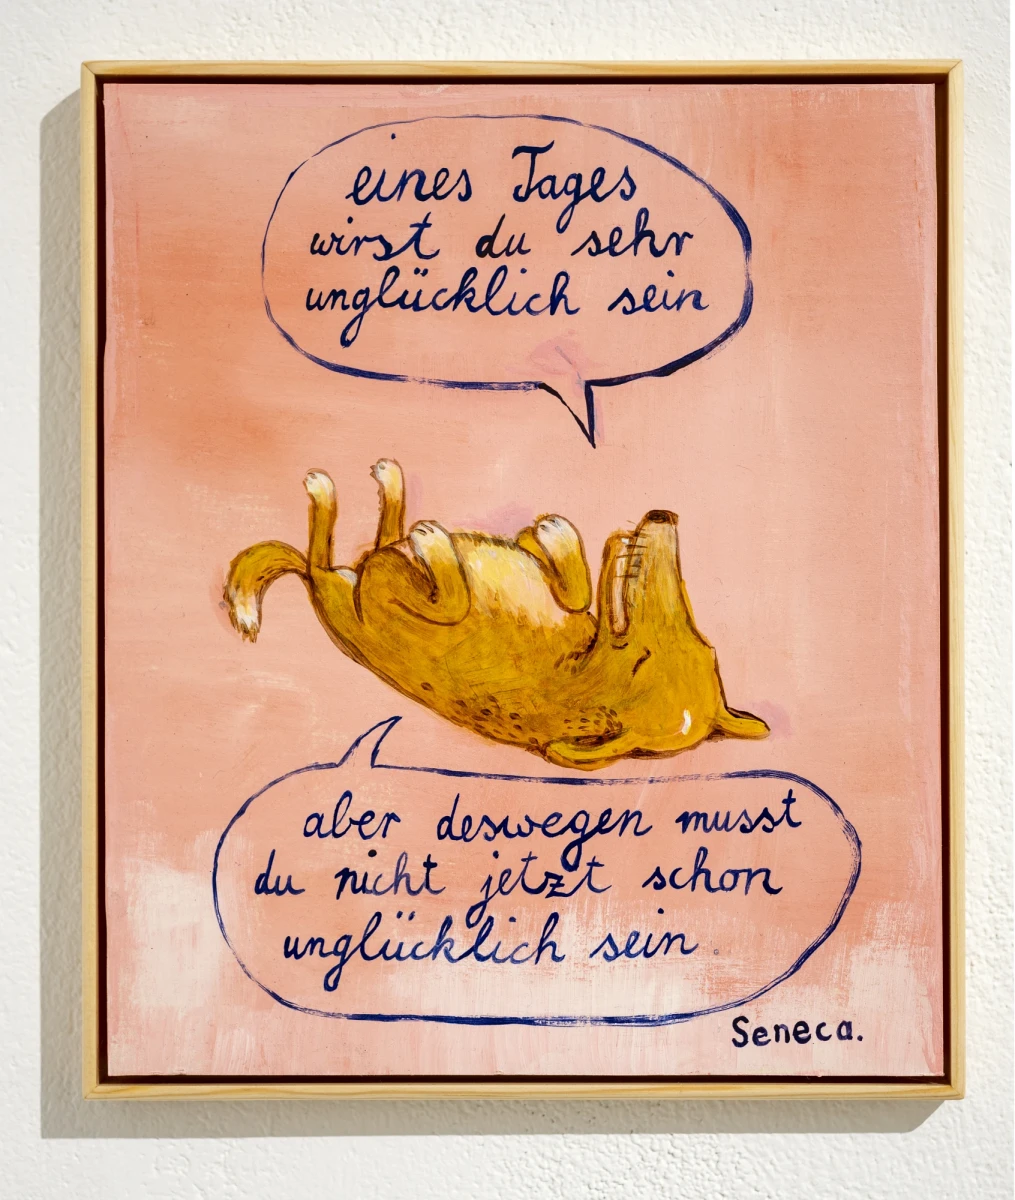 eines Tages
wirst du sehr
unglücklich sein
aber deswegen musst
du nicht jetzt schon
unglücklich sein.
Seneca.